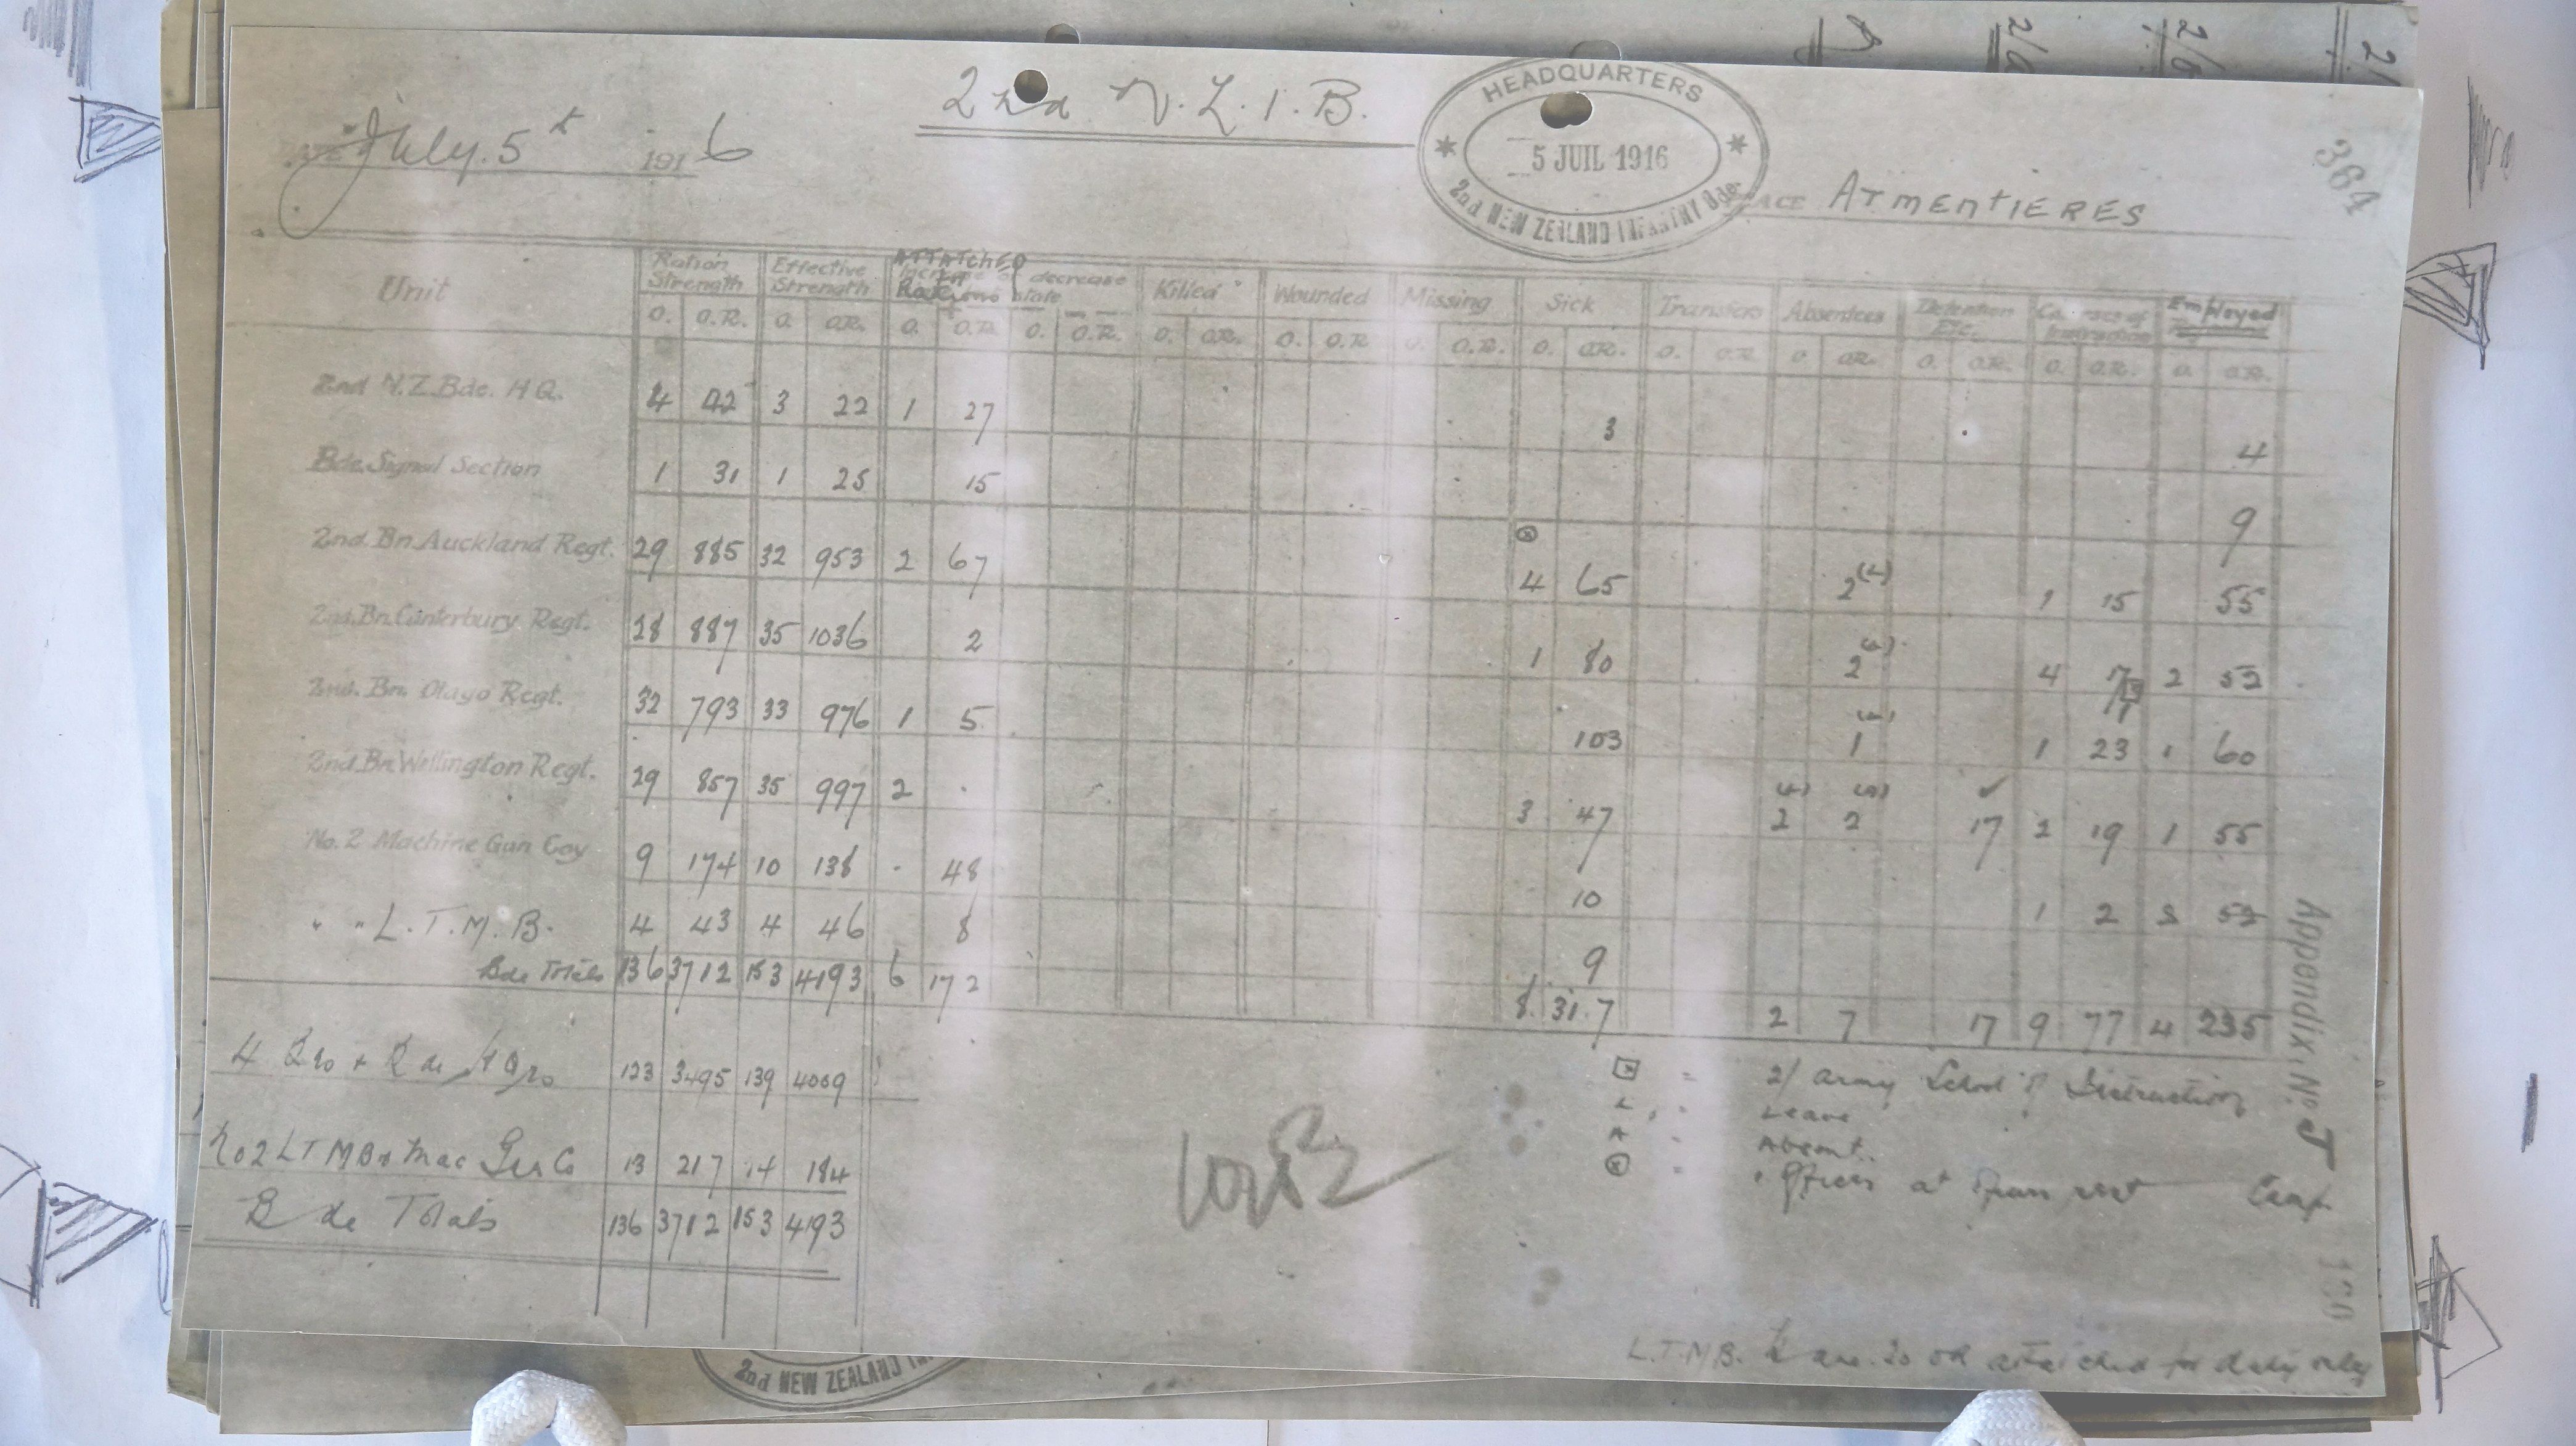 2nd N.Z.I.B.
HEADQUARTERS
5 JUIL 1916
2nd NEW ZEALAND INFANTRY Bde.
July. 5th 1916
364
ACE ARMENTIERES
Unit Ration Strength Effective Strength ATTATCHED Killed Wounded Missing Sick Transfers Absentees Detention Etc. Courses of Instruction Employed
decrease
Rations state
O. O.R. O. O.R. O. O.R. O. O.R. O. O.R. O. O.R. O. O.R. O. O.R. O. O.R. O. O.R. O. O.R. O. O.R. O. O.R.
2nd N.Z. Bde. H Q. 4 42 3 22 1 27 3 4
Bde. Signal Section 1 31 1 25 15 9
2nd. Bn. Auckland Regt. 29 885 32 953 2 67 4 65 2 (L) 1 15 55
2nd. Bn. Canterbury Regt. 28 887 35 1036 2 1 80 2 4 17 2 52
2nd. Bn. Otago Regt. 32 793 33 976 1 5 103 1 1 23 1 60
2nd. Bn. Wellington Regt. 29 857 35 997 2 . 3 47 2 2 17 2 19 1 55
No. 2 Machine Gun Coy 9 174 10 138 . 48 10 1 2
" " L.T.M.B. 4 43 4 46 8 9
Bde Totals 136 3712 153 4193 6 172 8 317 2 7 17 9 77 4 235
4 Bns + Bde HQrs 123 3495 139 4009
No 2 LTMB + Mac Gun Co 13 217 14 184
B de Totals 136 3712 153 4193
= 2/ Army School of Instruction
L " Leave
A " Absent.
= Officers at rest Camp.
Appendix No J
130
L.T.M.B. are 20 OR attatched for duty only
2nd NEW ZEALAND IN